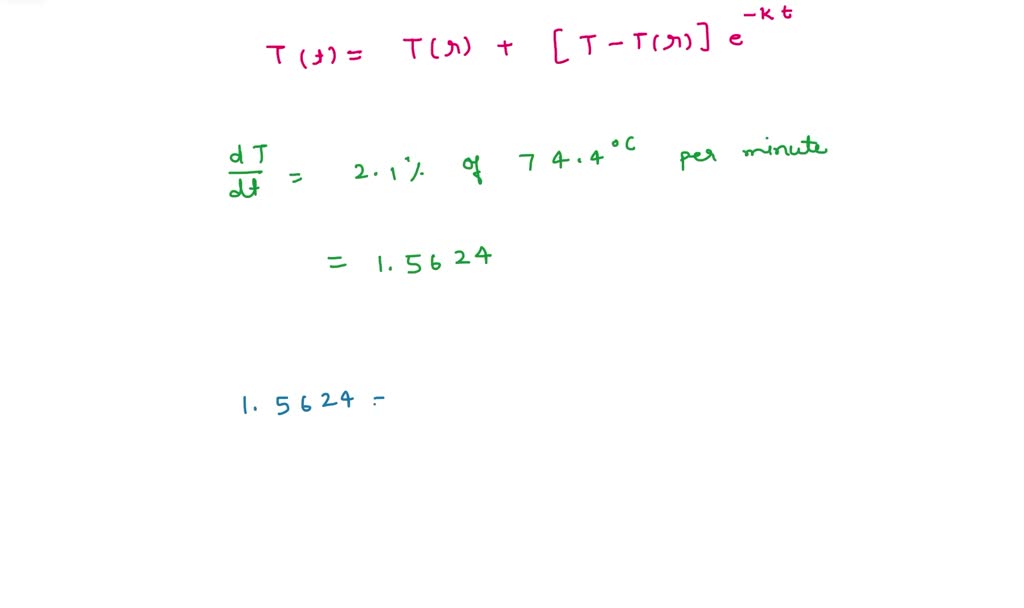 T(t) = T(r) + [T - T(r)] e^{-kt}
dT/dt = 2.1% of 74.4°C per minute
= 1.5624
1.5624 =